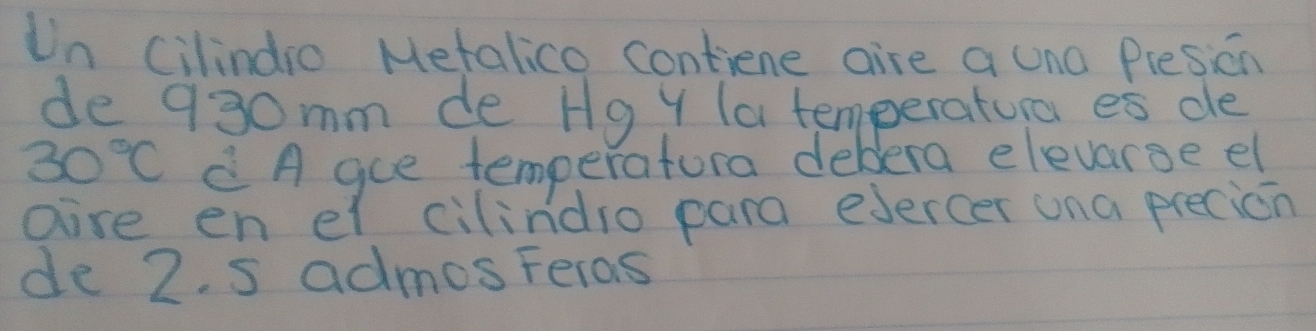 Un Cilindro Metalico Contiene aire a una Presión
de 930mm de Hg y la temperatura es de
30°C ¿ A que temperatura debera elevarse el
aire en el cilindro para ejercer una preción
de 2.5 admosFeras